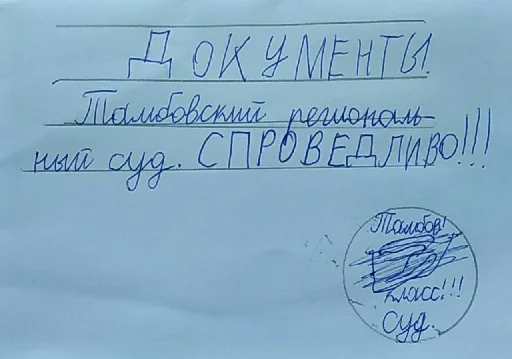 ДОКУМЕНТЫ.
Тамбовский региональ-
ный суд. СПРОВЕДЛИВО!!!
Тамбов!
класс!!!
суд.